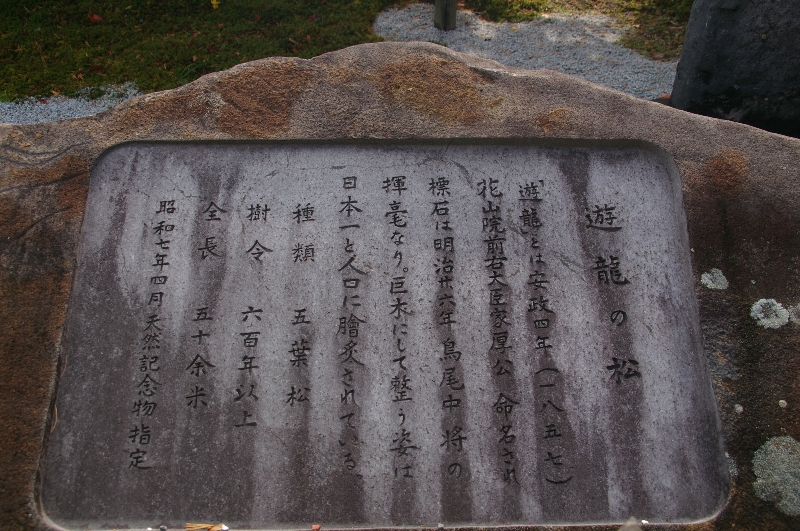 遊龍の松
「遊龍」とは安政四年(一八五七)
花山院前右大臣家厚公命名され
標石は明治廿六年鳥尾中将の
揮毫なり。巨木にして整う姿は
日本一と人口に膾炙されている。
種類 五葉松
樹令 六百年以上
全長 五十余米
昭和七年四月天然記念物指定